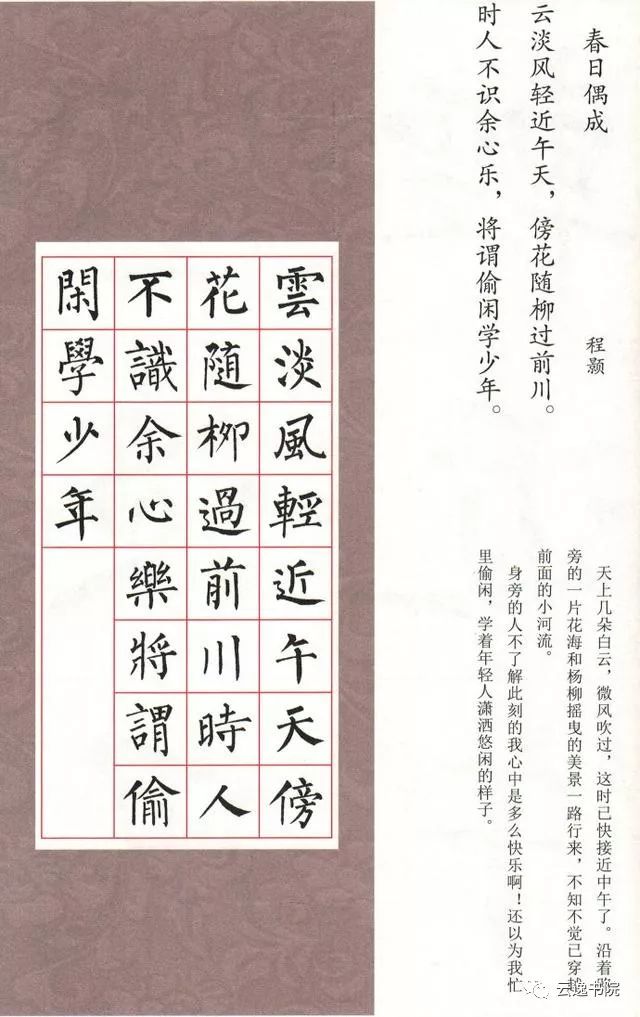 春日偶成
程颢
云淡风轻近午天，傍花随柳过前川。
时人不识余心乐，将谓偷闲学少年。
天上几朵白云，微风吹过，这时已快接近中午了。沿着路
旁的一片花海和杨柳摇曳的美景一路行来，不知不觉已穿越
前面的小河流。
身旁的人不了解此刻的我心中是多么快乐啊！还以为我忙
里偷闲，学着年轻人潇洒悠闲的样子。
雲淡風輕近午天傍
花随柳過前川時人
不識余心樂將謂偷
閑學少年
云逸书院